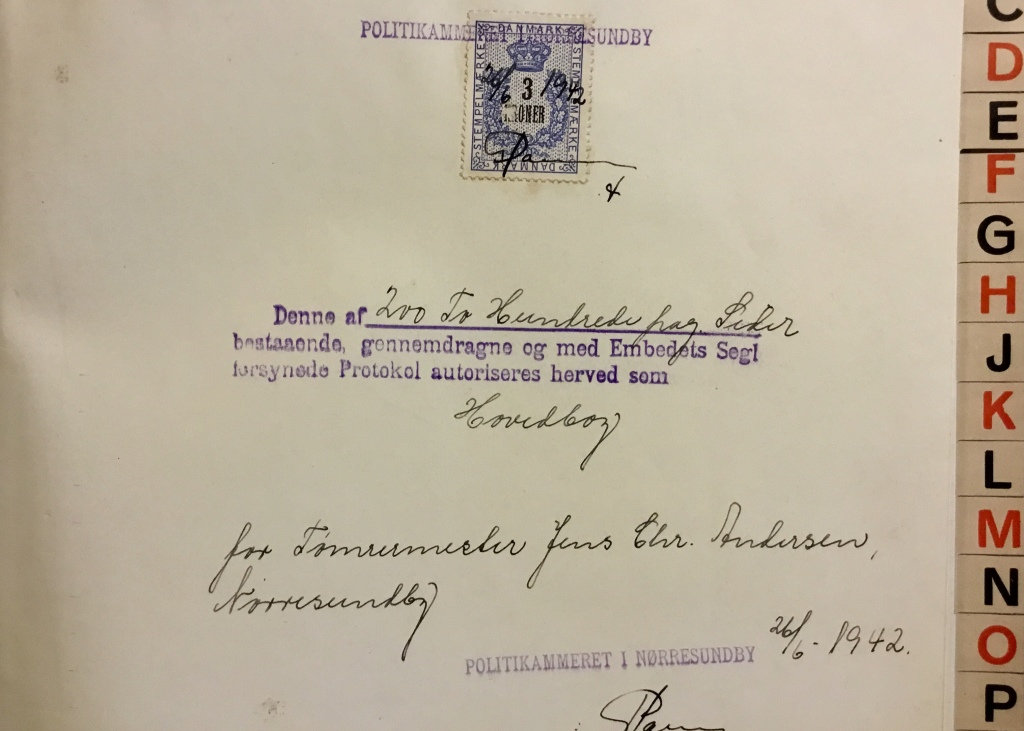 POLITIKAMMERET I NØRRESUNDBY
DANMARK
STEMPELMÆRKE
STEMPELMÆRKE
26/6 1942
3
KRONER
DANMARK
Denne af 200 To Hundrede pag. Sider
bestaaende, gennemdragne og med Embedets Segl
forsynede Protokol autoriseres herved som
Hovedbog
for Tømrermester Jens Chr. Andersen,
Nørresundby
26/6 - 1942.
POLITIKAMMERET I NØRRESUNDBY
C
D
E
F
G
H
J
K
L
M
N
O
P